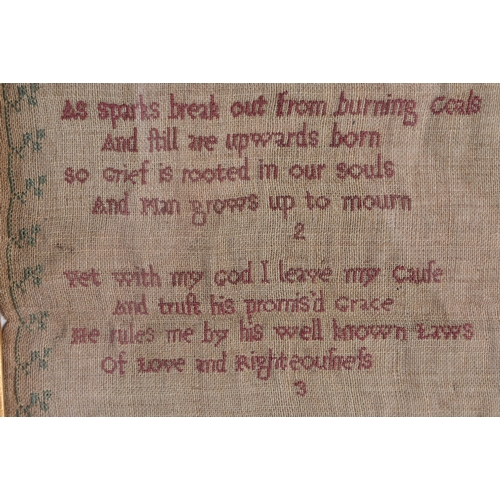 As sparks break out from burning Coals
And ſtill are upwards born
So Grief is rooted in our souls
And Man grows up to mourn
2
Yet with my God I leave my Cauſe
And truſt his promis'd Grace
He rules me by his well known Laws
Of Love and Righteouſneſs
3